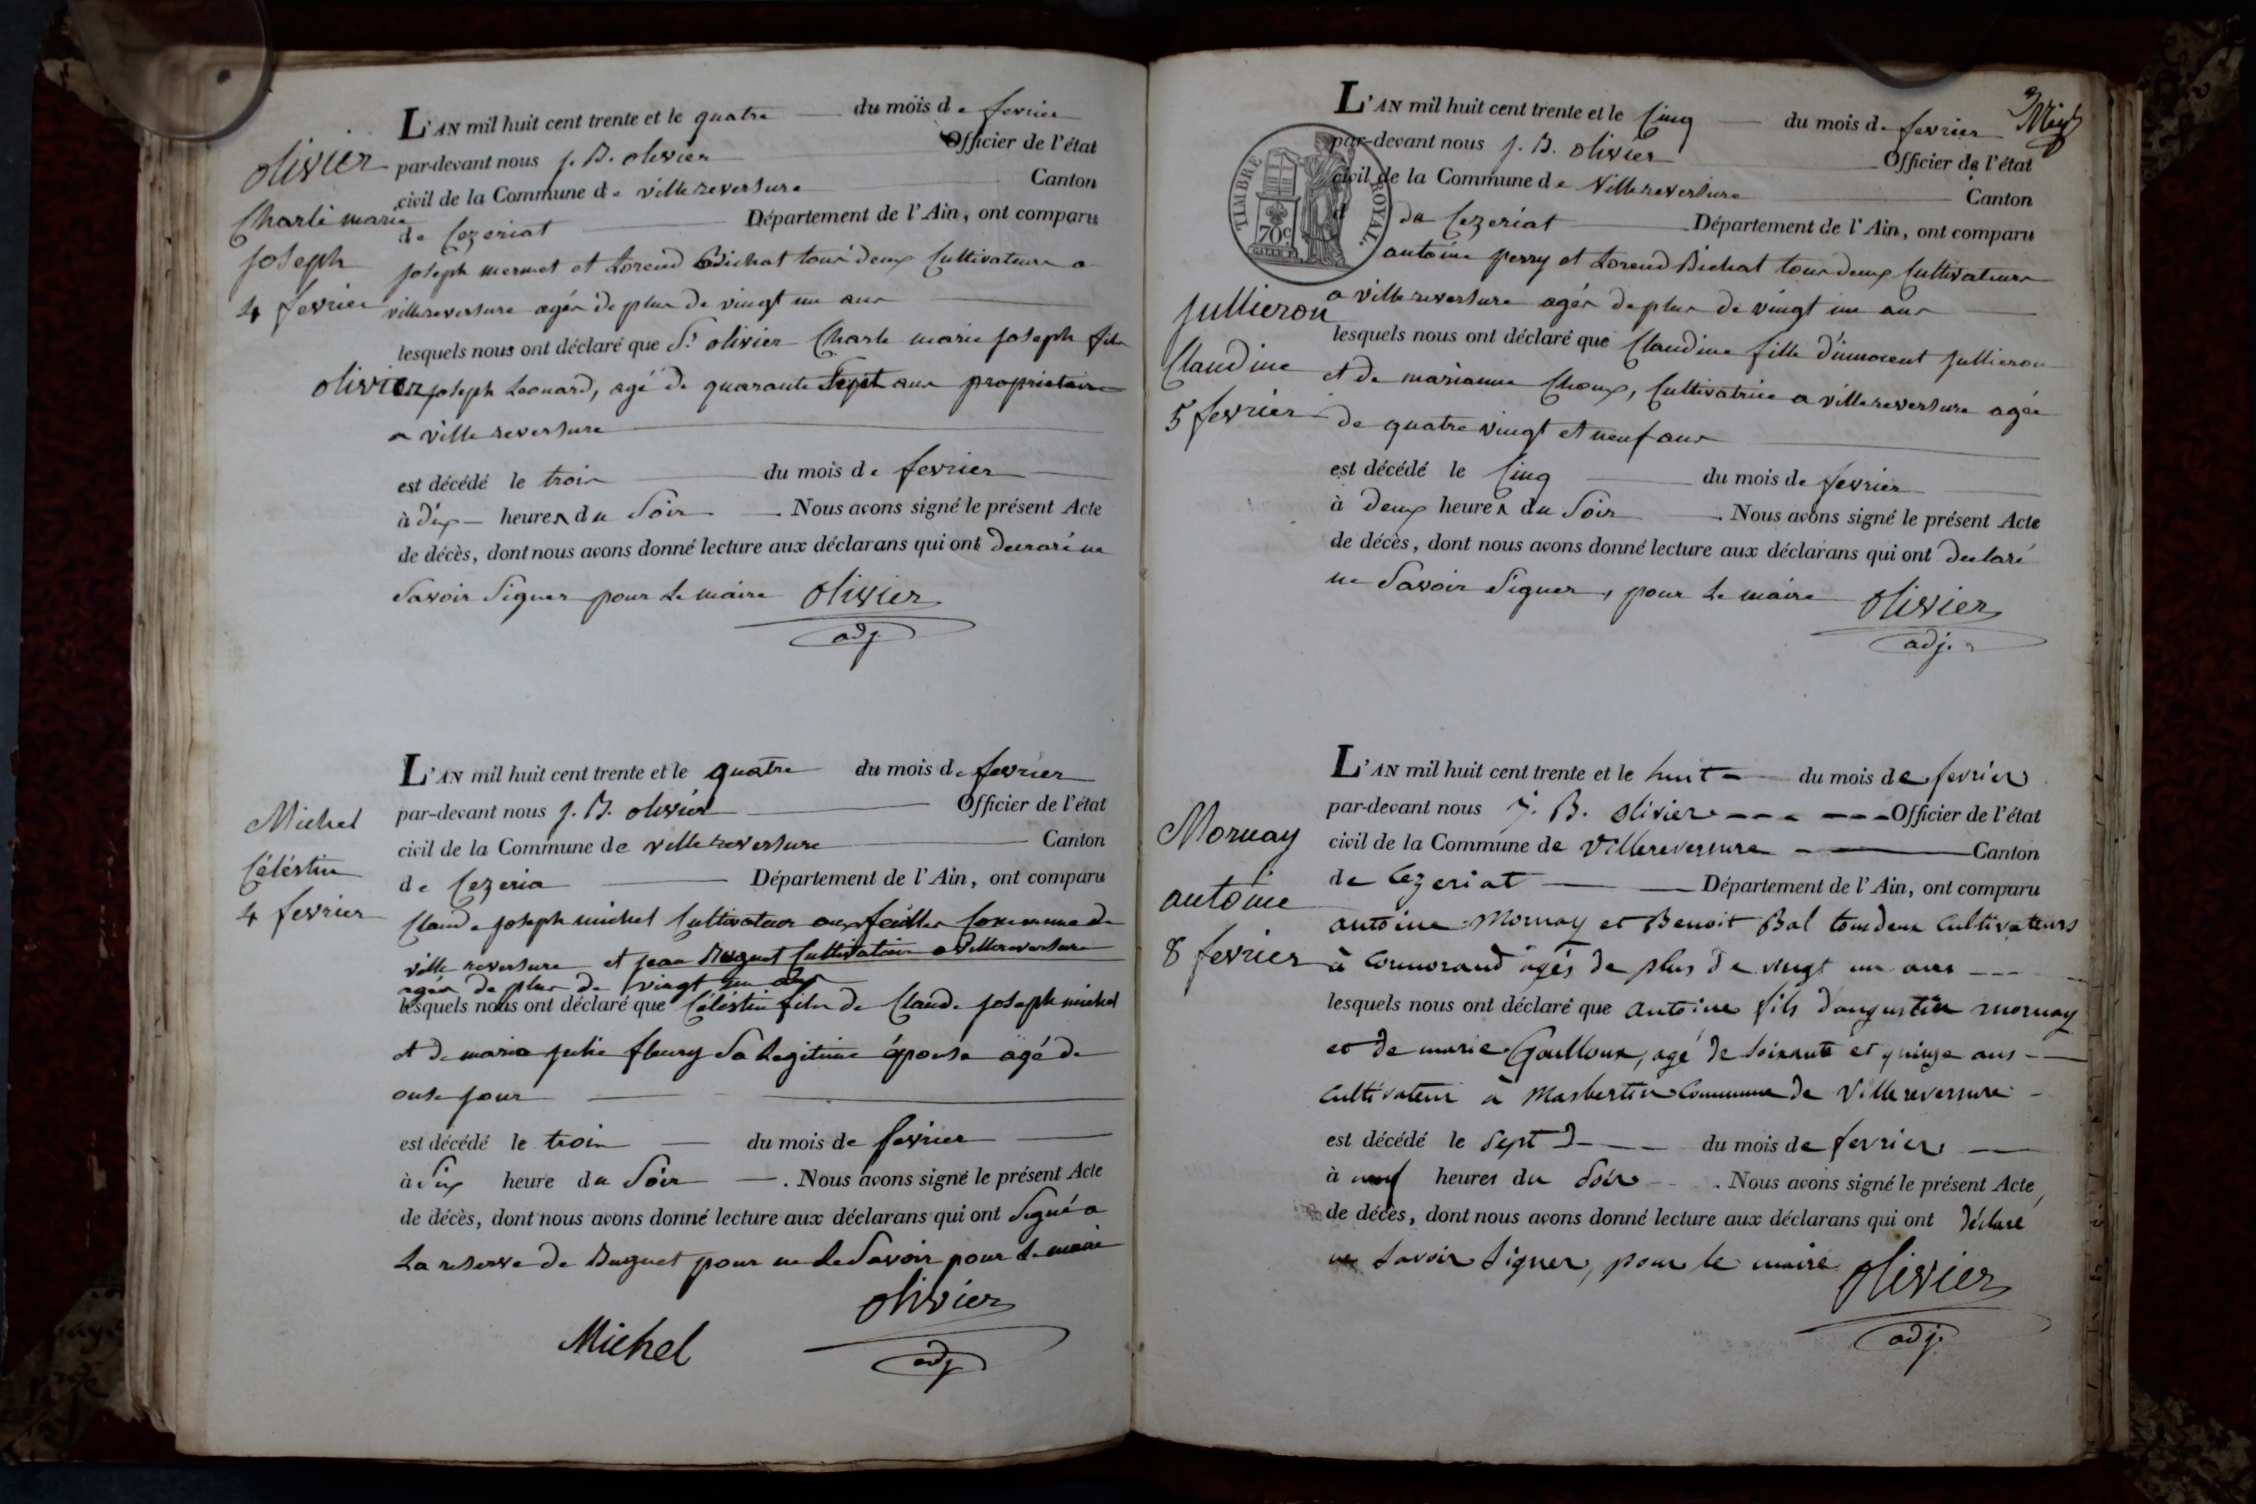 L'AN mil huit cent trente et le quatre du mois de fevrier
par-devant nous J. B. olivier Officier de l'état
civil de la Commune de villereversure Canton
de Cezeriat Département de l'Ain, ont comparu
joseph mermet et Lorend Bichat tous deux Cultivateurs a
villereversure agés de plus de vingt un ans
lesquels nous ont déclaré que Sr olivier Charle marie joseph fils
olivier joseph Leonard, agé de quarante Sept ans proprietaire
a villereversure
est décédé le trois du mois de fevrier
à dix heures du Soir . Nous avons signé le présent Acte
de décès, dont nous avons donné lecture aux déclarans qui ont declaré ne
Savoir Signer pour Le maire olivier
adj.
olivier
Charle marie
joseph
4 fevrier
L'AN mil huit cent trente et le quatre du mois de fevrier
par-devant nous J. B. olivier Officier de l'état
civil de la Commune de villereversure Canton
de Cezeria Département de l'Ain, ont comparu
Claude joseph michel Cultivateur aux feuilles Commune de
villereversure et jean Buguet Cultivateur a villereversure
agés de plus de vingt un ans
lesquels nous ont déclaré que Céléstin fils de Claude joseph michel
et de marie julie fleury Sa Legitime épouse agé de
onse jour
est décédé le trois du mois de fevrier
à Six heure du Soir . Nous avons signé le présent Acte
de décès, dont nous avons donné lecture aux déclarans qui ont Signé a
La reserve de Buguet pour ne Le Savoir pour Le maire
olivier
Michel adj
Michel
Céléstin
4 fevrier
TIMBRE ROYAL.
70c
L'AN mil huit cent trente et le Cinq du mois de fevrier
par-devant nous J. B. olivier Officier de l'état
civil de la Commune de Villereversure Canton
de Cezeriat Département de l'Ain, ont comparu
antoine perry et Lorend Bichat tous deux Cultivateurs
a villereversure agés de plus de vingt un ans
lesquels nous ont déclaré que Claudine fille d'innocent jullieron
et de marianne Choux, Cultivatrice a villereversure agée
de quatre vingt et neuf ans
est décédé le Cinq du mois de fevrier
à deux heures du Soir . Nous avons signé le présent Acte
de décès, dont nous avons donné lecture aux déclarans qui ont declaré
ne Savoir Signer, pour Le maire olivier
adj.
jullieron
Claudine
5 fevrier
L'AN mil huit cent trente et le huit du mois de fevrier
par-devant nous J. B. olivier Officier de l'état
civil de la Commune de Villereversure Canton
de Cezeriat Département de l'Ain, ont comparu
antoine Mornay et Benoit Bal tous deux Cultivateurs
à Cormorand agés de plus de vingt un ans
lesquels nous ont déclaré que antoine fils d'augustin mornay
et de marie Goulloux, agé de soixante et quinze ans
Cultivateur à Masbertin Commune de Villereversure
est décédé le Sept du mois de fevrier
à neuf heures du Soir . Nous avons signé le présent Acte
de décès, dont nous avons donné lecture aux déclarans qui ont déclaré
ne savoir signer, pour le maire olivier
adj.
Mornay
antoine
8 fevrier